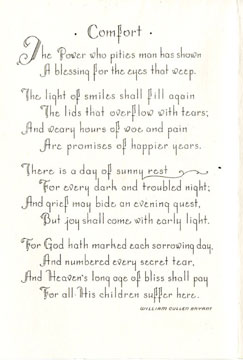 · Comfort ·
The Power who pities man has shown
A blessing for the eyes that weep.
The light of smiles shall fill again
The lids that overflow with tears;
And weary hours of woe and pain
Are promises of happier years.
There is a day of sunny rest
For every dark and troubled night;
And grief may bide an evening guest,
But joy shall come with early light.
For God hath marked each sorrowing day,
And numbered every secret tear,
And Heaven's long age of bliss shall pay
For all His children suffer here.
WILLIAM CULLEN BRYANT